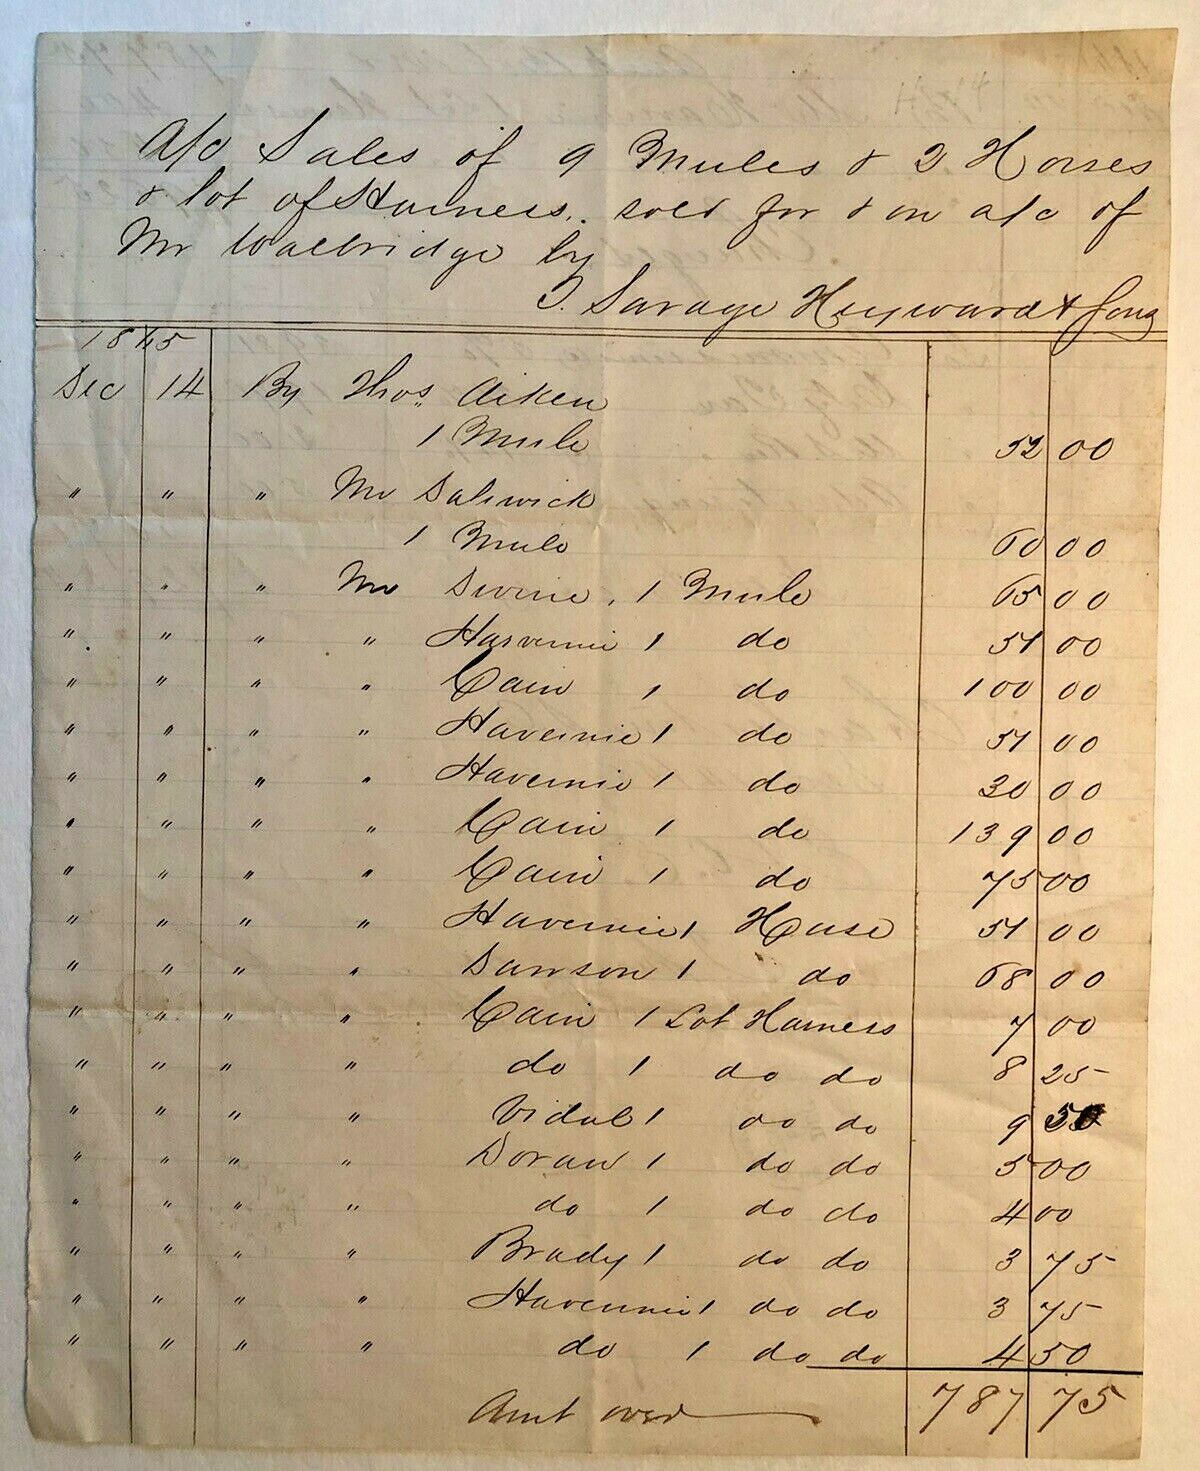 A/c Sales of 9 Mules & 2 Horses
& lot of Harness. sold for & on a/c of
Mr Walbridge by
T. Savage Heyward & Sons
1865
Dec 14 By Thos. Aiken
1 Mule 52 00
" " " Mr
1 Mule 60 00
" " " Mr Devine, 1 Mule 65 00
" " " " Havernie 1 do 51 00
" " " " Cain 1 do 100 00
" " " " Havernie 1 do 51 00
" " " " Havernie 1 do 30 00
" " " " Cain 1 do 139 00
" " " " Cain 1 do 75 00
" " " " Havernie 1 Horse 51 00
" " " " Dawson 1 do 68 00
" " " " Cain 1 Lot Harness 7 00
" " " " do 1 do do 8 25
" " " " Vidal 1 do do 9 50
" " " " Doran 1 do do 5 00
" " " " do 1 do do 4 00
" " " " Brady 1 do do 3 75
" " " " Havennie 1 do do 3 75
" " " " do 1 do do 4 50
Amt over 787 75